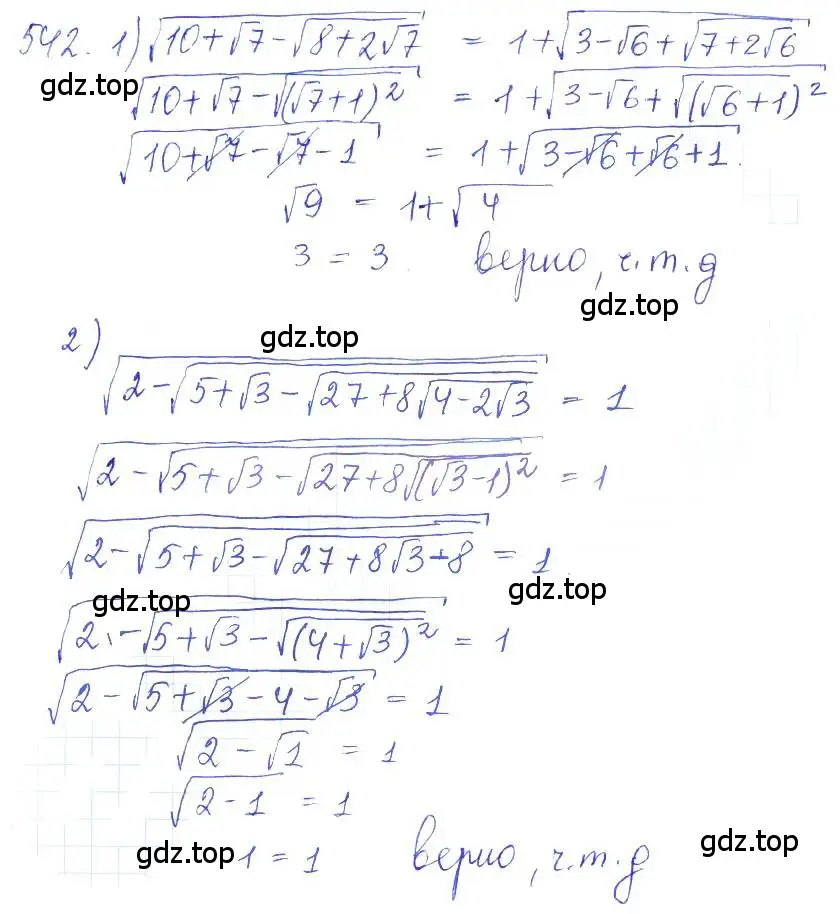 542. 1) √(10+√7-√(8+2√7)) = 1+√(3-√6+√(7+2√6))
gdz.top
√(10+√7-√((√7+1)²)) = 1+√(3-√6+√((√6+1)²))
√(10+√7-√7-1) = 1+√(3-√6+√6+1).
√9 = 1+√4
3 = 3. верно, ч.т.д
gdz.top
gdz.top
2)
√(2-√(5+√3-√(27+8√(4-2√3)))) = 1
√(2-√(5+√3-√(27+8√((√3-1)²)))) = 1
√(2-√(5+√3-√(27+8√3-8))) = 1
gdz.top
gdz.top
√(2-√(5+√3-√((4+√3)²))) = 1
√(2-√(5+√3-4-√3)) = 1
√(2-√1) = 1
√(2-1) = 1
gdz.top 1 = 1 верно, ч.т.д gdz.top